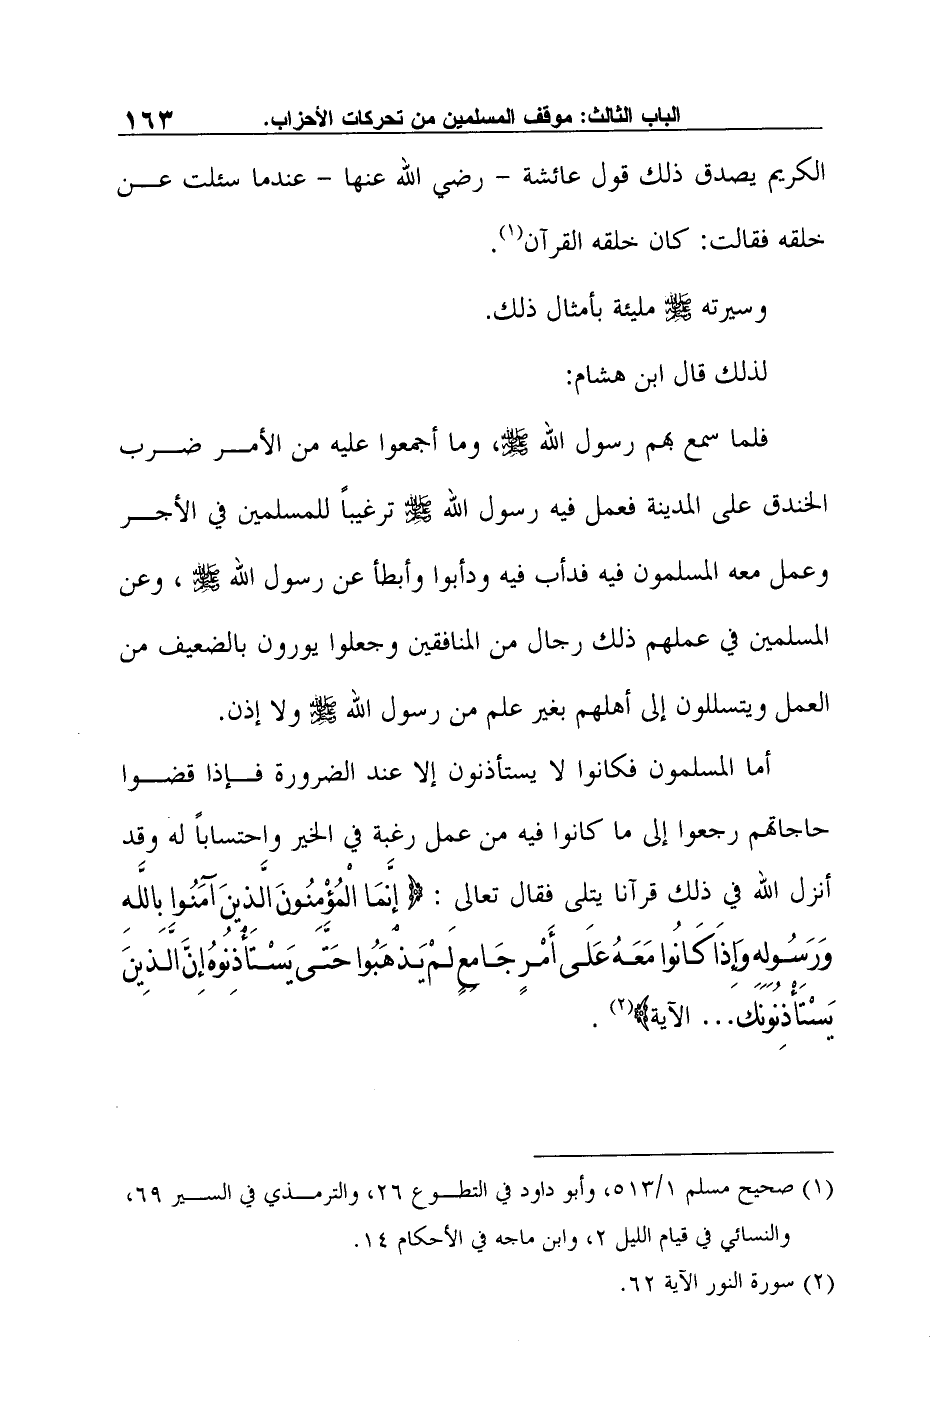 الباب الثالث: موقف المسلمين من تحركات الأحزاب. ١٦٣
الكريم يصدق ذلك قول عائشة - رضي الله عنها - عندما سئلت عن
خلقه فقالت: كان خلقه القرآن(١).
وسيرته ﷺ مليئة بأمثال ذلك.
لذلك قال ابن هشام:
فلما سمع بهم رسول الله ﷺ، وما أجمعوا عليه من الأمر ضرب
الخندق على المدينة فعمل فيه رسول الله ﷺ ترغيباً للمسلمين في الأجر
وعمل معه المسلمون فيه فدأب فيه ودأبوا وأبطأ عن رسول الله ﷺ ، وعن
المسلمين في عملهم ذلك رجال من المنافقين وجعلوا يورون بالضعيف من
العمل ويتسللون إلى أهلهم بغير علم من رسول الله ﷺ ولا إذن.
أما المسلمون فكانوا لا يستأذنون إلا عند الضرورة فإذا قضوا
حاجاتهم رجعوا إلى ما كانوا فيه من عمل رغبة في الخير واحتساباً له وقد
أنزل الله في ذلك قرآنا يتلى فقال تعالى : ﴿ إِنَّمَا الْمُؤْمِنُونَ الَّذِينَ آمَنُوا بِاللَّهِ
وَرَسُولِهِ وَإِذَا كَانُوا مَعَهُ عَلَى أَمْرٍ جَامِعٍ لَمْ يَذْهَبُوا حَتَّى يَسْتَأْذِنُوهُ إِنَّ الَّذِينَ
يَسْتَأْذِنُونَكَ... الآية﴾(٢) .
(١) صحيح مسلم ٥١٣/١، وأبو داود في التطوع ٢٦، والترمذي في السير ٦٩،
والنسائي في قيام الليل ٢، وابن ماجه في الأحكام ١٤.
(٢) سورة النور الآية ٦٢.